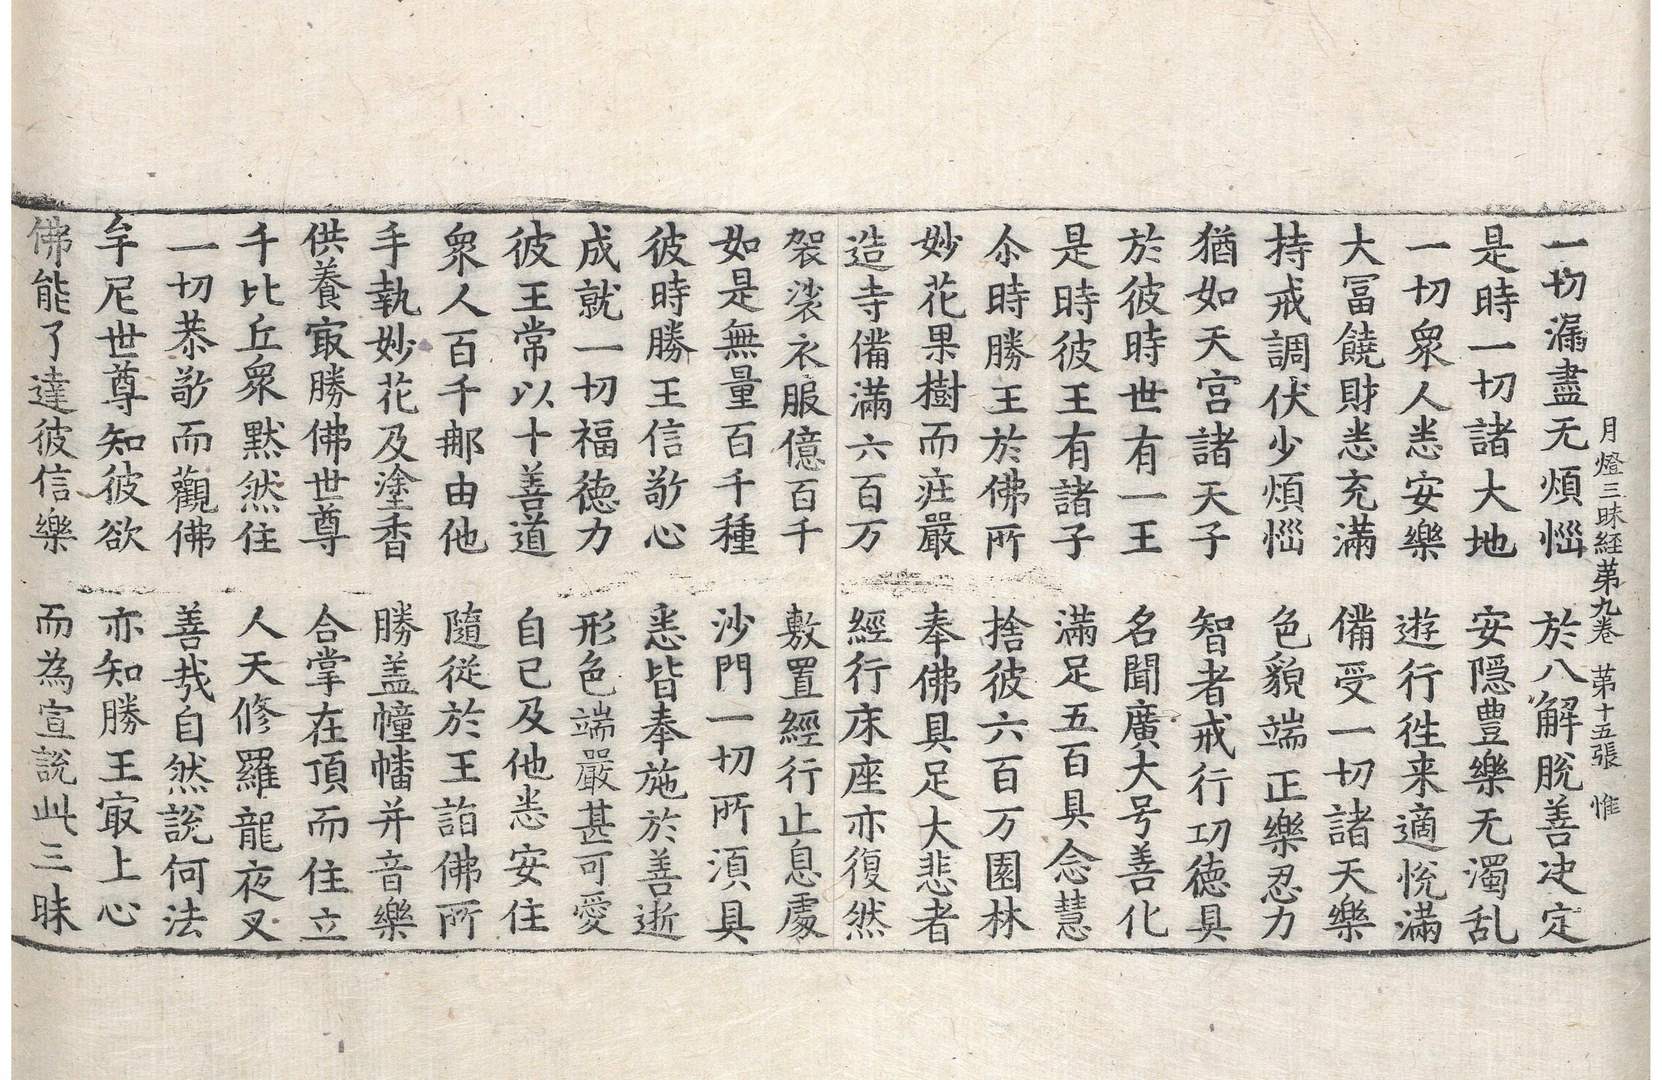 月燈三昧経苐九卷　苐十五張　惟
一切漏盡无煩惱　於八解脫善决定
是時一切諸大地　安隱豊樂无濁乱
一切衆人悉安樂　遊行徃来適恱滿
大冨饒財悉充滿　備受一切諸天樂
持戒調伏少煩惱　色貌端正樂忍力
猶如天宮諸天子　智者戒行功德具
於彼時世有一王　名聞廣大号善化
是時彼王有諸子　滿足五百具念慧
尒時勝王於佛所　捨彼六百万園林
妙花果樹而莊嚴　奉佛具足大悲者
造寺備滿六百万　經行床座亦復然
袈裟衣服億百千　敷置經行止息處
如是無量百千種　沙門一切所湏具
彼時勝王信敬心　悉皆奉施於善逝
成就一切福德力　形色端嚴甚可愛
彼王常以十善道　自已及他悉安住
衆人百千那由他　隨從於王詣佛所
手執妙花及塗香　勝盖幢幡并音樂
供養㝡勝佛世尊　合掌在頂而住立
千比丘衆默然住　人天修羅龍夜叉
一切恭敬而觀佛　善哉自然說何法
牟尼世尊知彼欲　亦知勝王㝡上心
佛能了達彼信樂　而為宣說此三昧